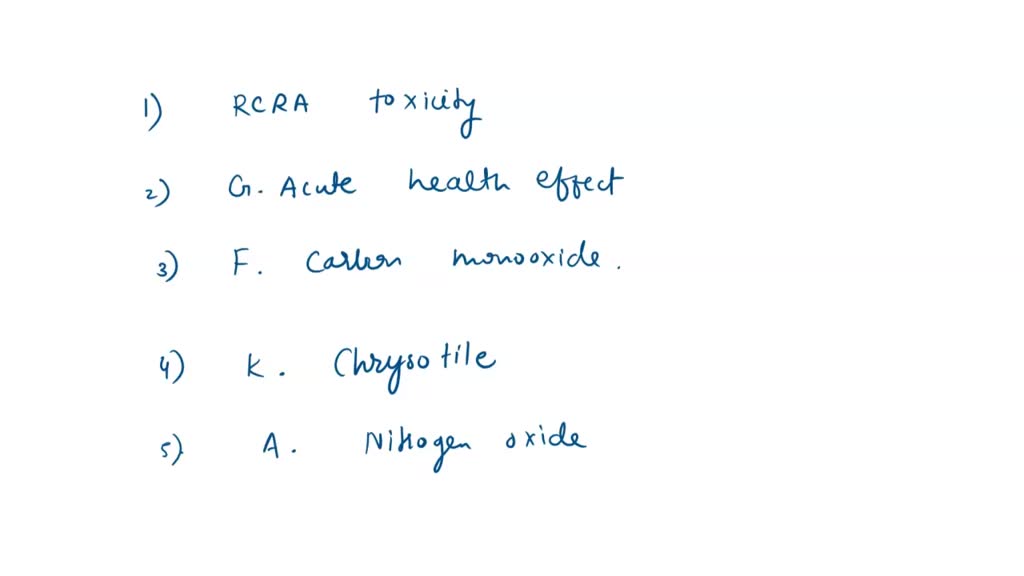 1) RCRA toxicity
2) G. Acute health effect
3) F. Carbon monooxide.
4) K. Chrysotile
5) A. Nitrogen oxide